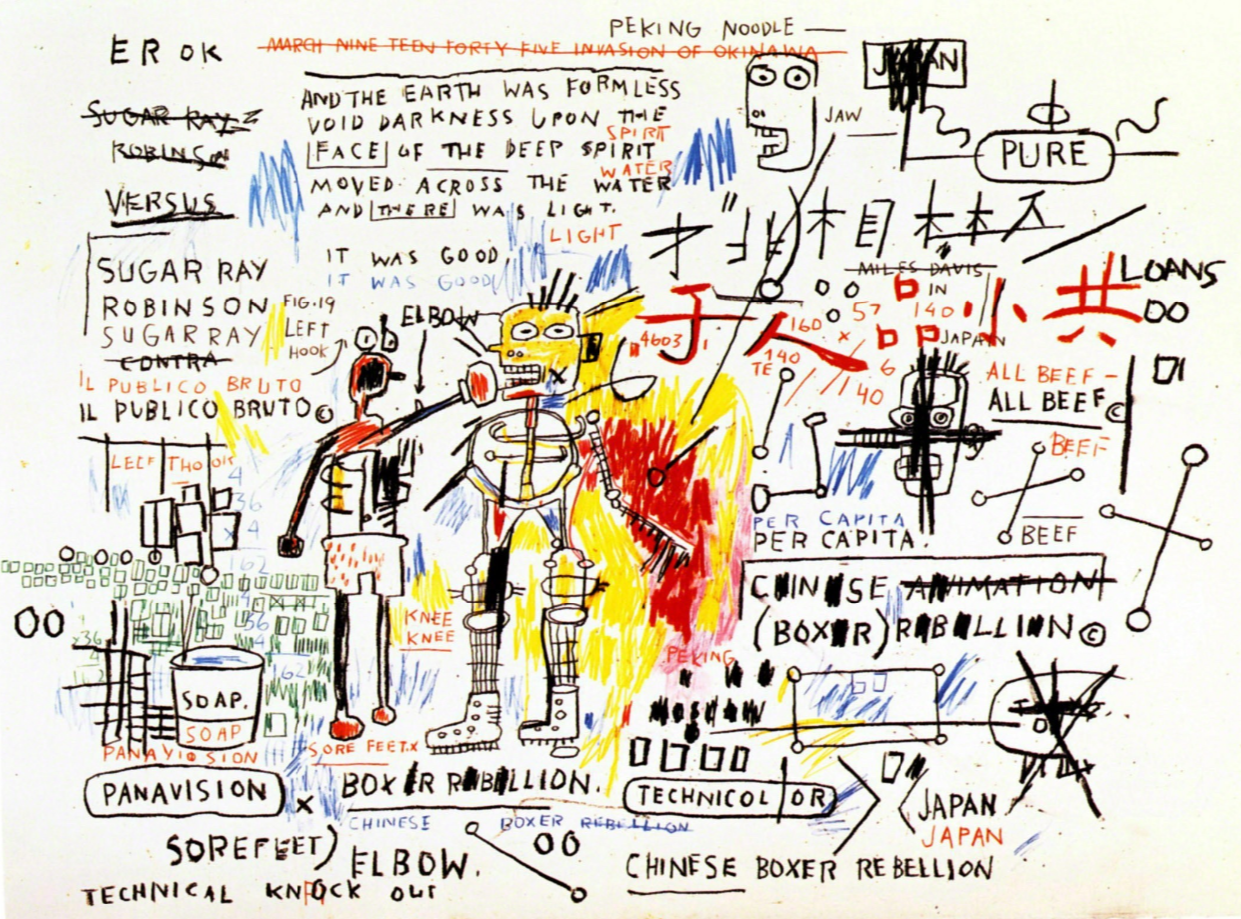 PEKING NOODLE —
ER OK
MARCH NINE TEEN FORTY FIVE INVASION OF OKINAWA
JAPAN
SUGAR RAY
ROBINSON
VERSUS
AND THE EARTH WAS FORMLESS
VOID DARKNESS UPON THE
SPIRIT
FACE OF THE DEEP SPIRIT
WATER
MOVED ACROSS THE WATER
AND THERE WAS LIGHT.
LIGHT
IT WAS GOOD,
IT WAS GOOD
JAW
PURE
MILES DAVIS
IN
LOANS
OO
子人品小共
57
140
JAPAN
4603
160
x
6
140
TE
140
SUGAR RAY
ROBINSON
SUGAR RAY
CONTRA
IL PUBLICO BRUTO
IL PUBLICO BRUTO©
FIG.19
LEFT
HOOK
ELBOW
x
ALL BEEF –
ALL BEEF©
BEEF
BEEF
PER CAPITA
PER CAPITA.
4
36
x 4
162
4
56
4
162
x36
OO
SOAP.
SOAP
PANAVISION
PANAVISION
x
SORE FEET.x
KNEE
KNEE
CHINESE ANIMATION
(BOXER) REBELLION©
PEKING
MOSCOW
BOXER REBELLION.
CHINESE BOXER REBELLION
TECHNICOLOR
JAPAN
JAPAN
SOREFEET)
ELBOW.
OO
CHINESE BOXER REBELLION
TECHNICAL KNOCK OUT